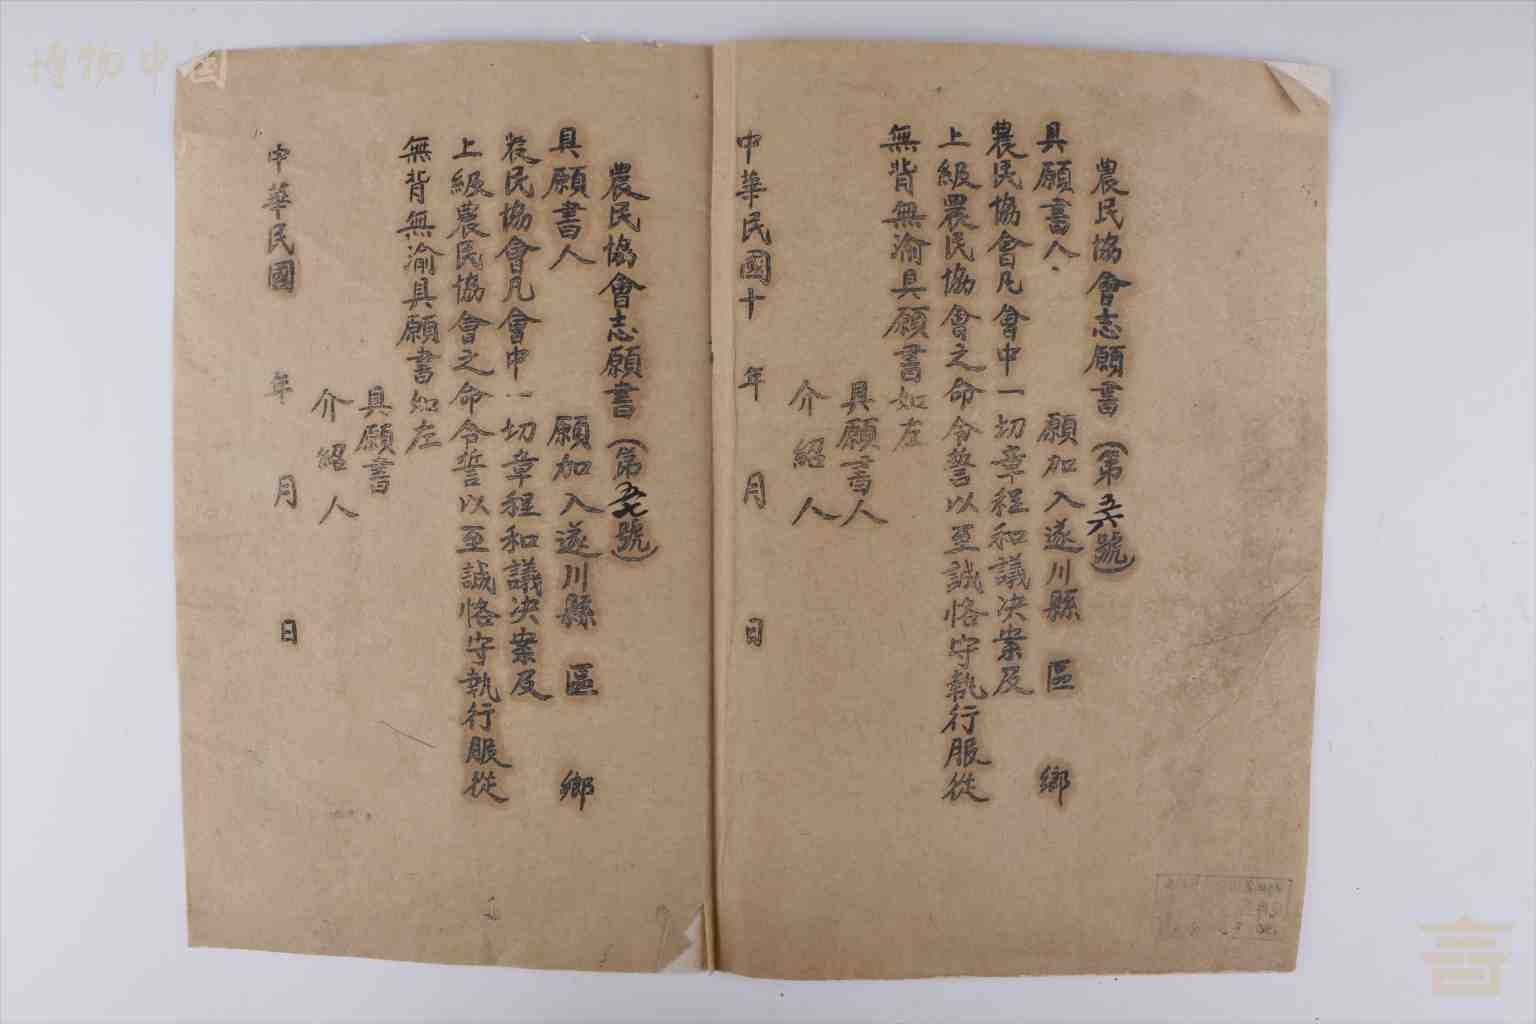 博物中国
農民協會志願書(第五六號)
具願書人 願加入遂川縣 區 鄉
農民協會凡會中一切章程和議决案及
上級農民協會之命令誓以至誠恪守執行服從
無背無渝具願書如左
具願書人
介紹人
中華民國十 年 月 日
農民協會志願書(第五七號)
具願書人 願加入遂川縣 區 鄉
農民協會凡會中一切章程和議决案及
上級農民協會之命令誓以至誠恪守執行服從
無背無渝具願書如左
具願書
介紹人
中華民國 年 月 日